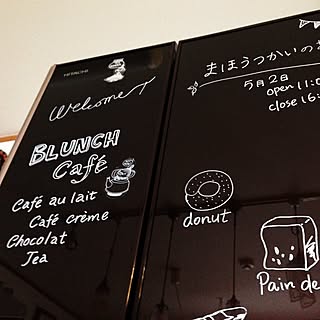 HITACHI
Welcome
BLUNCH
Café
Café au lait
Café crème
Chocolat
Tea
まほうつかいの
5月2日
open 11:0
close 16:
donut
Pain de